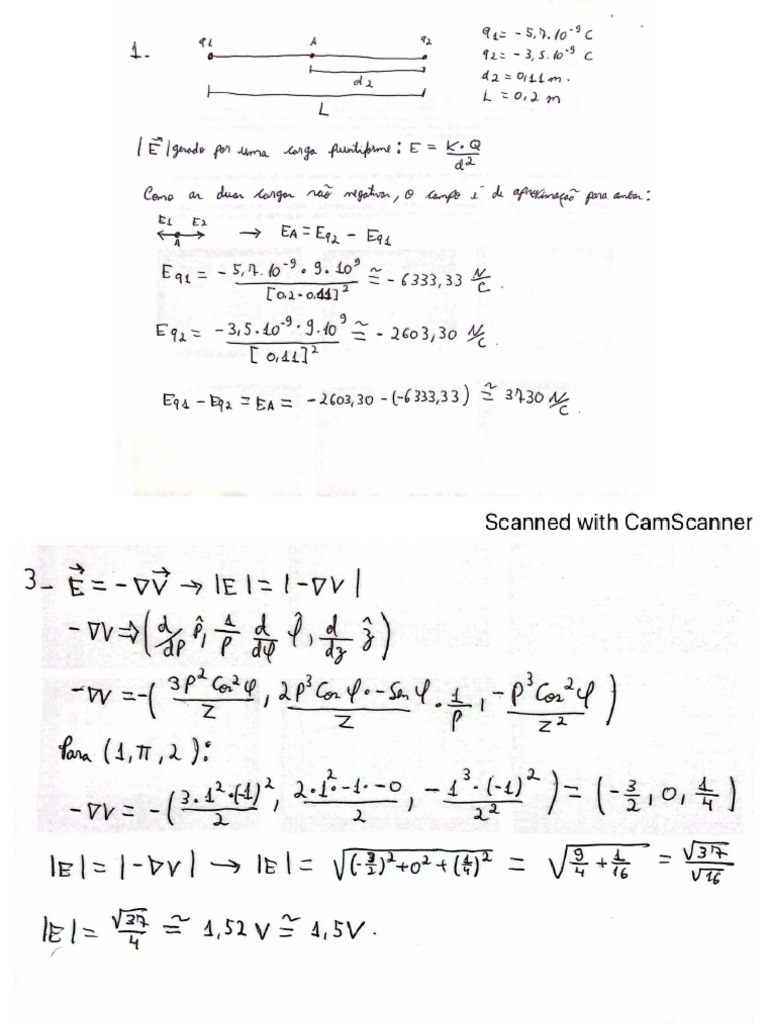 1.
q1 A q2
d2
L
q1 = - 5,7.10⁻⁹ C
q2 = - 3,5.10⁻⁹ C
d2 = 0,11 m.
L = 0,2 m
|E⃗| gerado por uma carga puntiforme: E = K•Q / d²
Como as duas cargas são negativas, o campo é de aproximação para ambas:
E1 E2
A → EA = Eq2 - Eq1
Eq1 = - 5,7.10⁻⁹ • 9 • 10⁹ / [0,2 - 0,11]² ≅ - 6333,33 N/C.
Eq2 = - 3,5•10⁻⁹ • 9.10⁹ / [0,11]² ≅ - 2603,30 N/C.
Eq1 - Eq2 = EA = - 2603,30 - (-6333,33) ≅ 3730 N/C.
Scanned with CamScanner
3- E⃗ = -∇V⃗ → |E| = |-∇V|
-∇V ⇒ (d/dρ ρ̂, 1/ρ d/dφ φ̂, d/dz ẑ)
-∇V = -(3ρ² Cos²φ / z, 2ρ³ Cos φ • -Sen φ / z • 1/ρ, -ρ³ Cos²φ / z²)
Para (1, π, 2):
-∇V = -(3•1²•(-1)² / 2, 2•1²•-1•-0 / 2, -1³•(-1)² / 2²) = (-3/2, 0, 1/4)
|E| = |-∇V| → |E| = √((-3/2)² + 0² + (1/4)²) = √(9/4 + 1/16) = √37 / √16
|E| = √37 / 4 ≅ 1,52 V ≅ 1,5V.